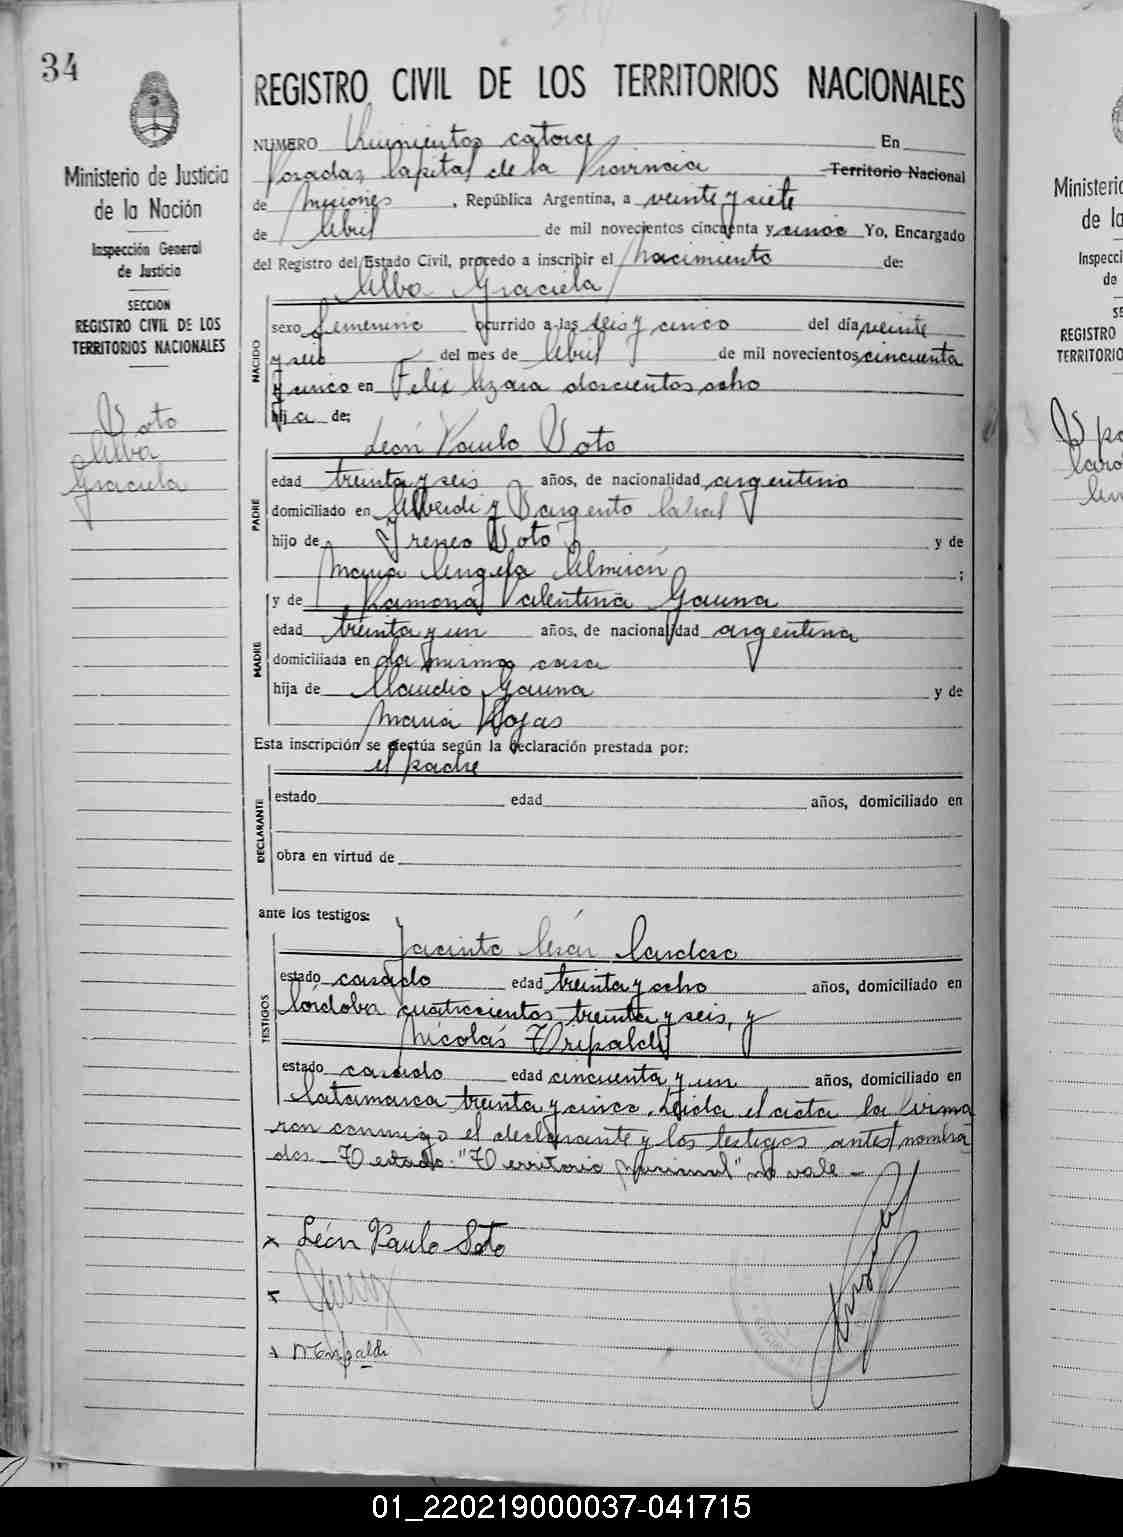 34
Ministerio de Justicia
de la Nación
Inspección General
de Justicia
SECCION
REGISTRO CIVIL DE LOS
TERRITORIOS NACIONALES
Soto
Alba
Graciela
REGISTRO CIVIL DE LOS TERRITORIOS NACIONALES
NUMERO Quinientos catorce En
Posadas, Capital de la Provincia Territorio Nacional
de Misiones, República Argentina, a veinte y siete
de Abril de mil novecientos cincuenta y cinco Yo, Encargado
del Registro del Estado Civil, procedo a inscribir el Nacimiento de:
Alba Graciela
NACIDO
sexo femenino ocurrido a las seis y cinco del día veinte
y seis del mes de Abril de mil novecientos cincuenta
y cinco en Felix Azara doscientos ocho
hija de:
León Paulo Soto
PADRE
edad treinta y seis años, de nacionalidad argentino
domiciliado en Alberdi y Sargento Cabral
hijo de Ireneo Soto y de
María Angela Almirón ;
y de Ramona Valentina Gauna
MADRE
edad treinta y un años, de nacionalidad argentina
domiciliada en la misma casa
hija de Claudio Gauna y de
María Rojas
Esta inscripción se efectúa según la declaración prestada por:
el padre
DECLARANTE
estado edad años, domiciliado en
obra en virtud de
ante los testigos:
Jacinto César Cardozo
TESTIGOS
estado casado edad treinta y ocho años, domiciliado en
Córdoba cuatrocientos treinta y seis, y
Nicolás Tripaldi
estado casado edad cincuenta y un años, domiciliado en
Catamarca treinta y cinco. Leida el acta la firma
ron conmigo el declarante y los testigos antes nombra
dos - Testado: "Territorio Nacional" no vale -
x León Paulo Soto
x
x NTripaldi
Ministerio
de la
Inspecci
de
SE
REGISTRO
TERRITORIO
01_220219000037-041715